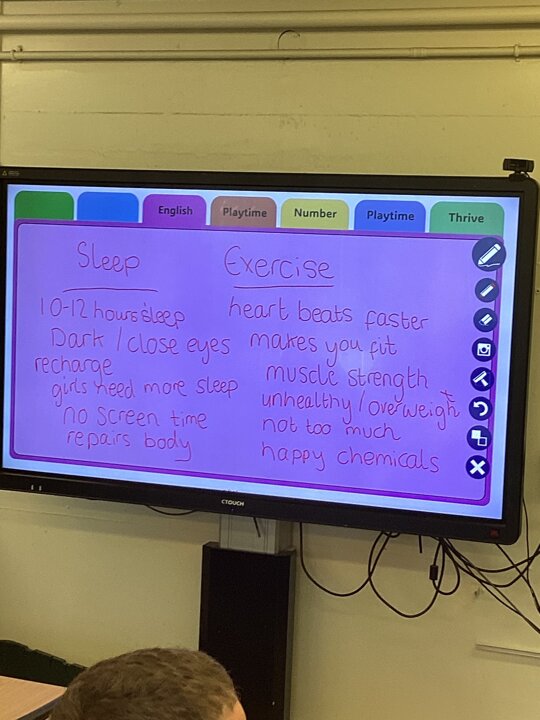 English
Playtime
Number
Playtime
Thrive
Sleep
10-12 hours sleep
Dark / close eyes
recharge
girls need more sleep
no screen time
repairs body
Exercise
heart beats faster
makes you fit
muscle strength
unhealthy / overweight
not too much
happy chemicals
CTOUCH